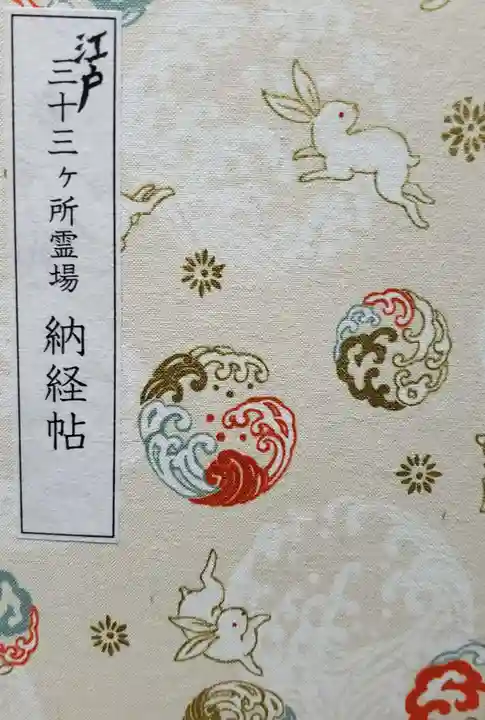 江戸
三十三ヶ所霊場 納経帖